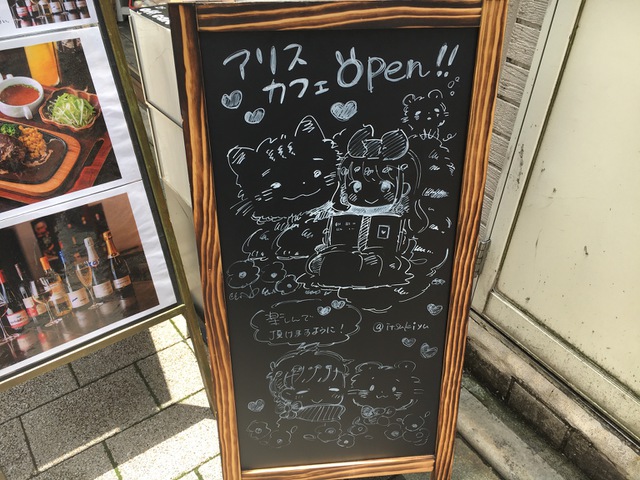 アリス
カフェ Open!!
楽しんで
頂けますように!